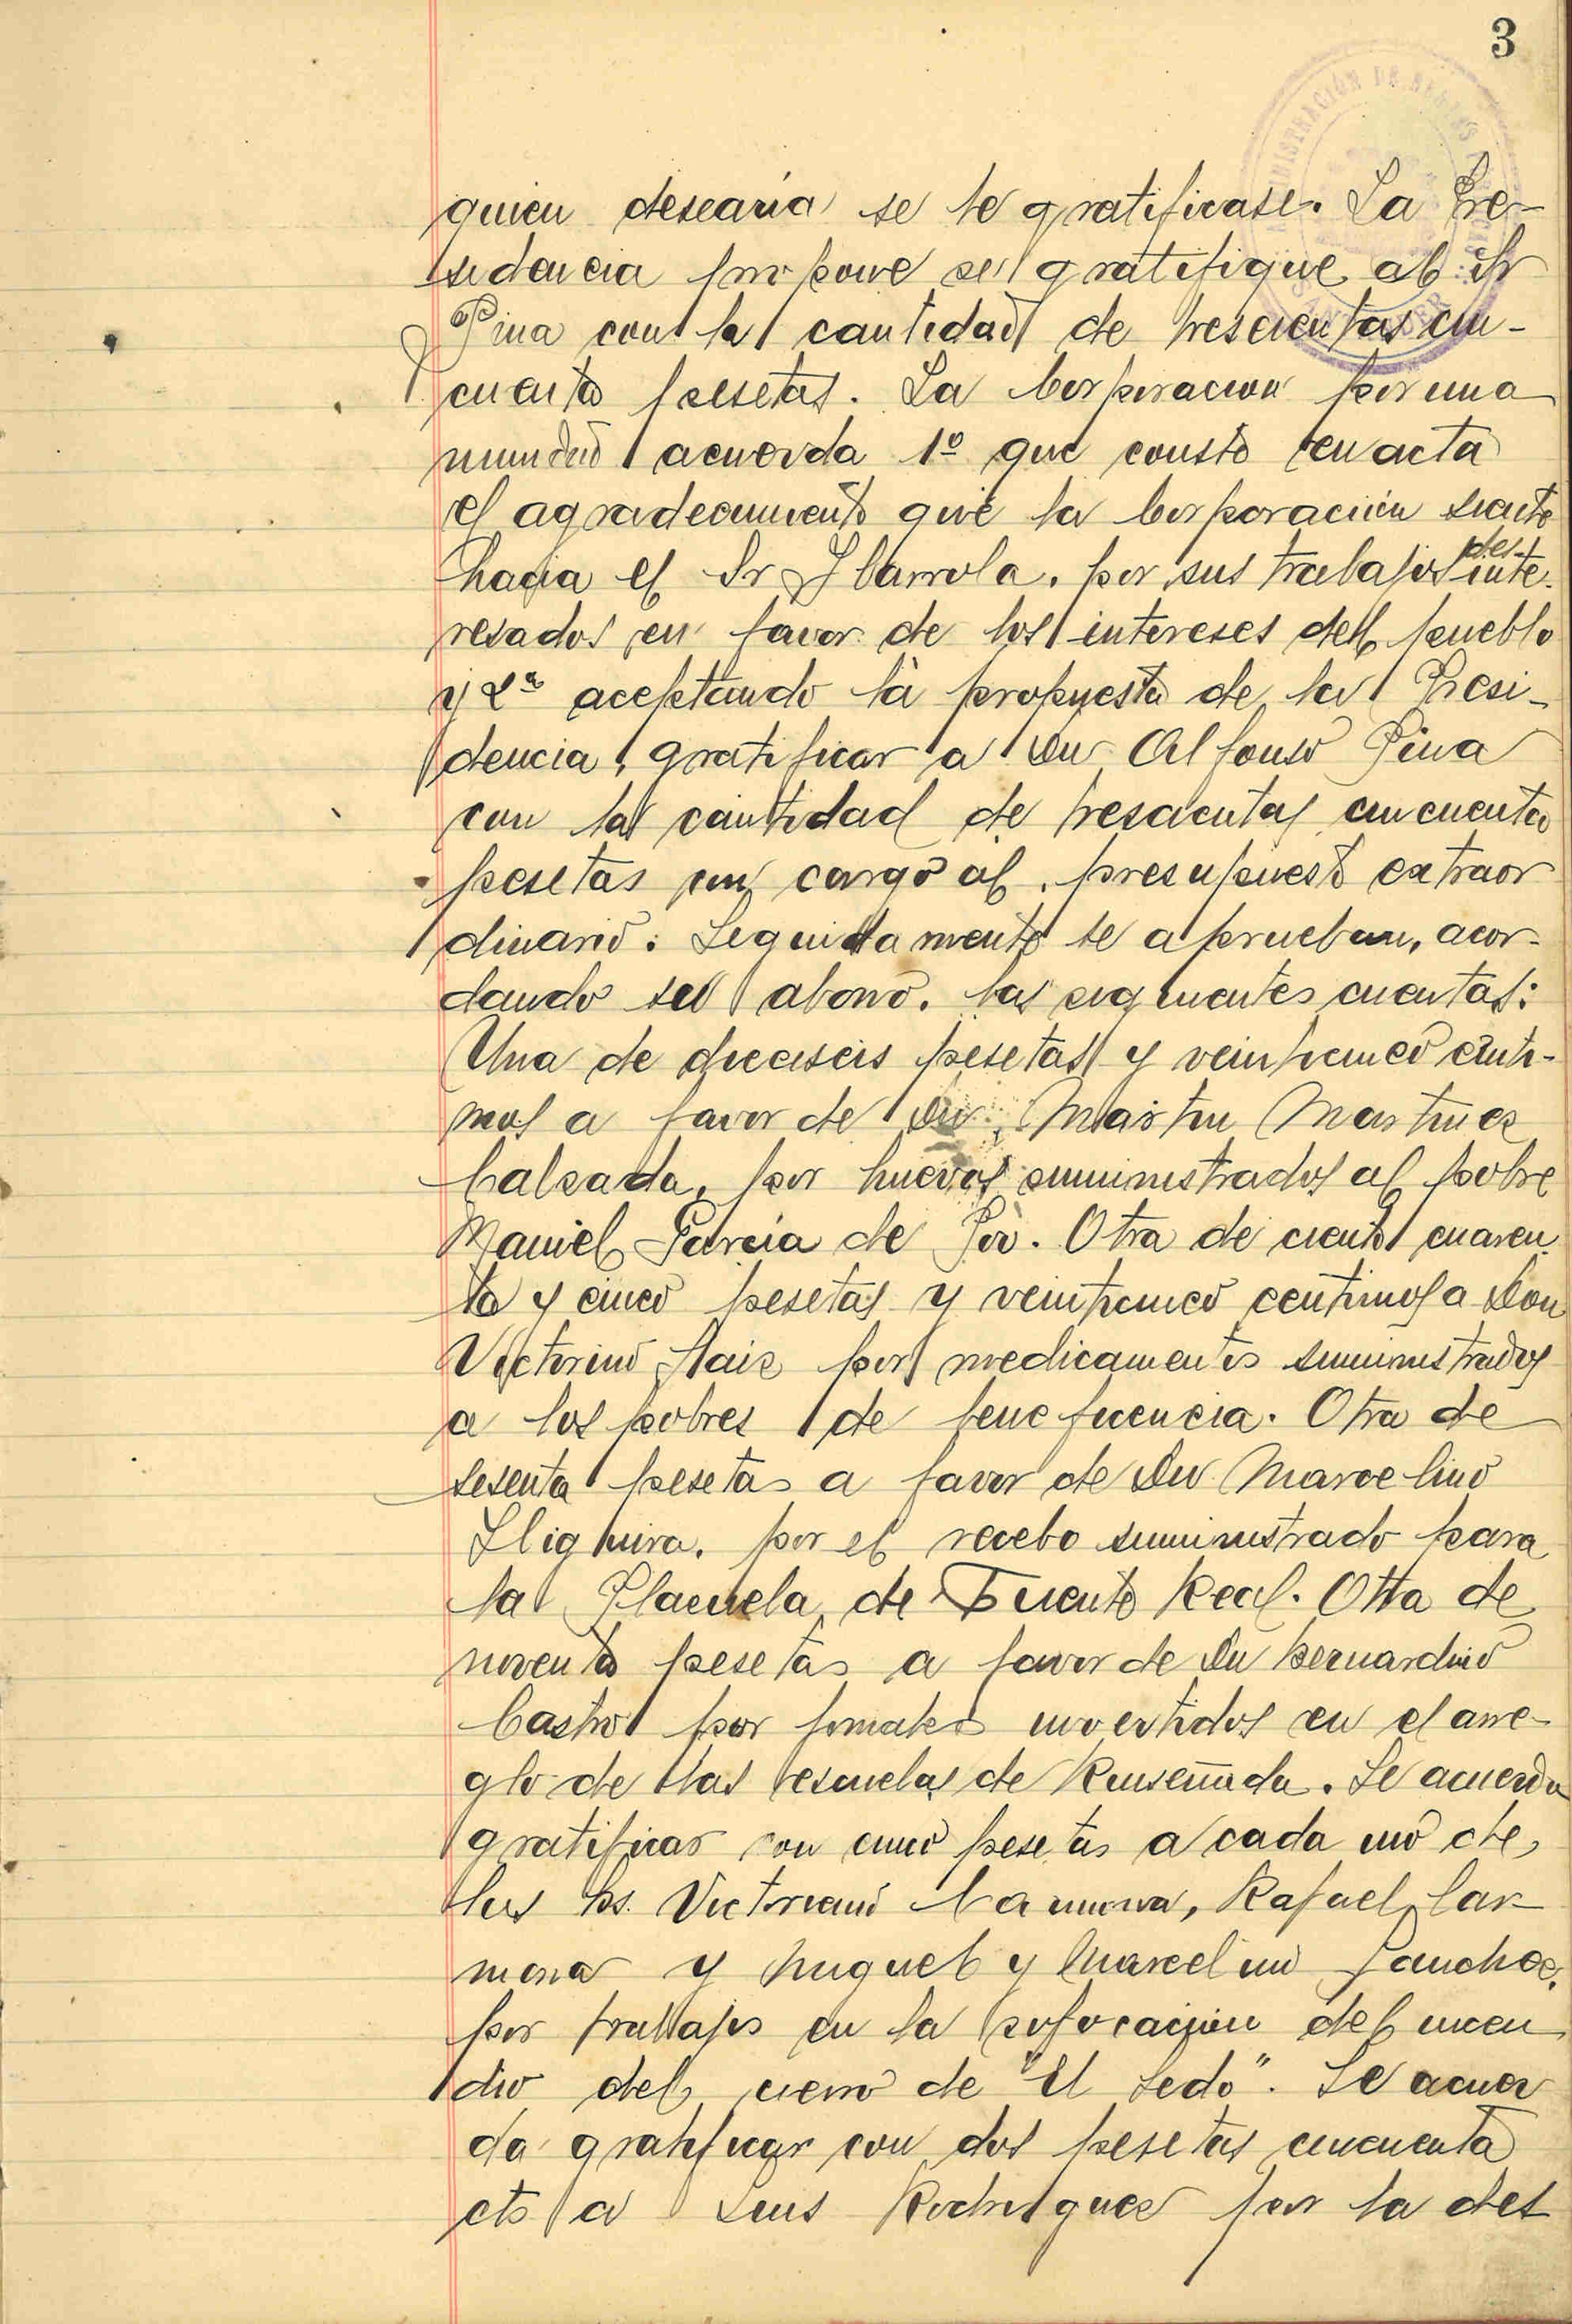 3
quien desearia se le gratificase. La Pre-
sidencia propone se gratifique al Sr
Pina con la cantidad de trescientas cin-
cuenta pesetas. La Corporacion por una
nimidad acuerda 1º que conste en acta
el agradecimiento que la Corporación siente
hacia el Sr Ibarrola, por sus trabajos desinte-
resados en favor de los intereses del pueblo
y 2ª aceptando la propuesta de la Presi-
dencia, gratificar a Dn Alfonso Pina
con la cantidad de trescientas cincuenta
pesetas con cargo al presupuesto extraor
dinario. Seguidamente se aprueban, acor-
dando su abono, las siguientes cuentas:
Una de dieciseis pesetas y veinticinco cénti-
mos a favor de Dn Martin Martinez
Calzada, por huevos suministrados al pobre
Manuel Garcia de Poo. Otra de ciento cuaren
ta y cinco pesetas y veinticinco centimos a Don
Victorino Saiz por medicamentos suministrados
a los pobres de beneficencia. Otra de
sesenta pesetas a favor de Dn Marcelino
por el recebo suministrado para
la Plazuela de Fuente Real. Otra de
noventa pesetas a favor de Dn Bernardino
Castro por jornales invertidos en el arre-
glo de las escuelas de Renseñada. Se acuerda
gratificar con cinco pesetas a cada uno de
los Victoriano Carmona, Rafael Car-
mona y Miguel y Marcelino Sanchez,
por trabajos en la sofocacion del incen
dio del cierro de "El Sedo". Se acuer
da gratificar con dos pesetas cincuenta
cts a Luis Rodriguez por la des